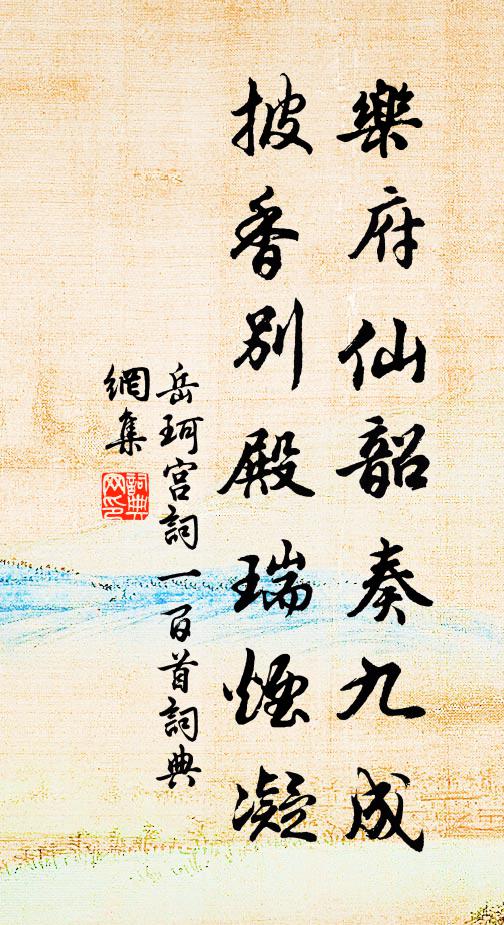 樂府仙韶奏九成
披香別殿瑞煙凝
岳珂宮詞一百首詞典
網集
詞典
网印